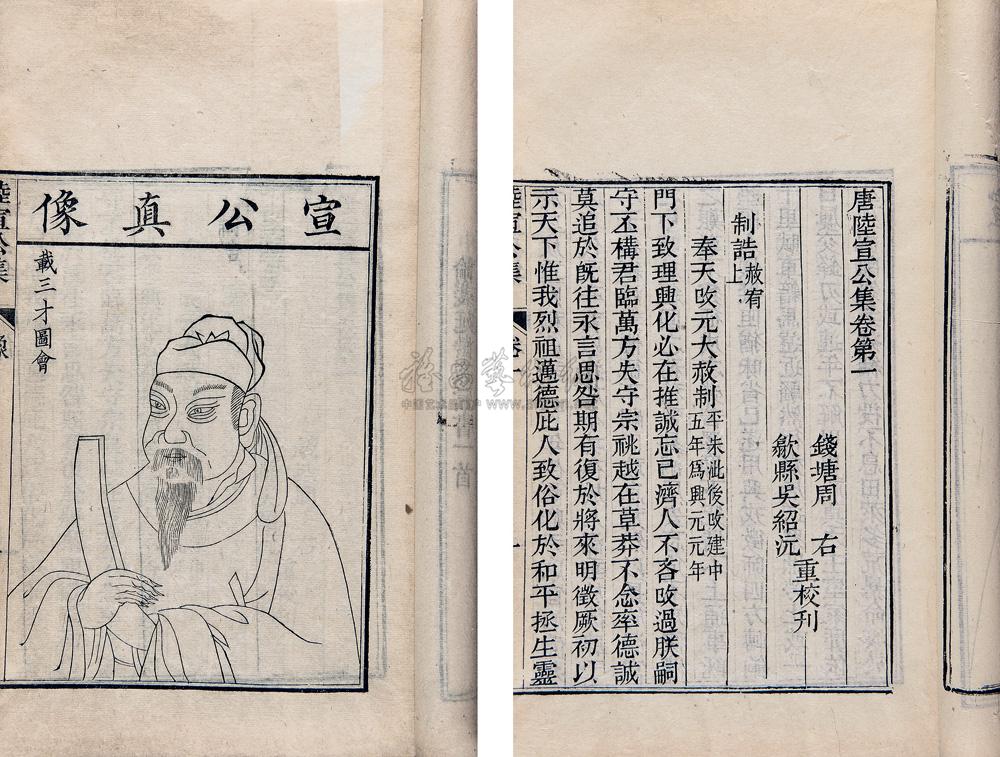 像真公宣
載三才圖會
唐陸宣公集卷第一
錢塘周　右
歙縣吳紹沅
重校刊
制誥
赦宥
上
奉天改元大赦制
平朱泚後改建中
五年爲興元元年
門下致理興化必在推誠忘已濟人不吝改過朕嗣
守丕構君臨萬方失守宗祧越在草莽不念率德誠
莫追於既往永言思咎期有復於將來明徵厥初以
示天下惟我烈祖邁德庇人致俗化於和平拯生靈